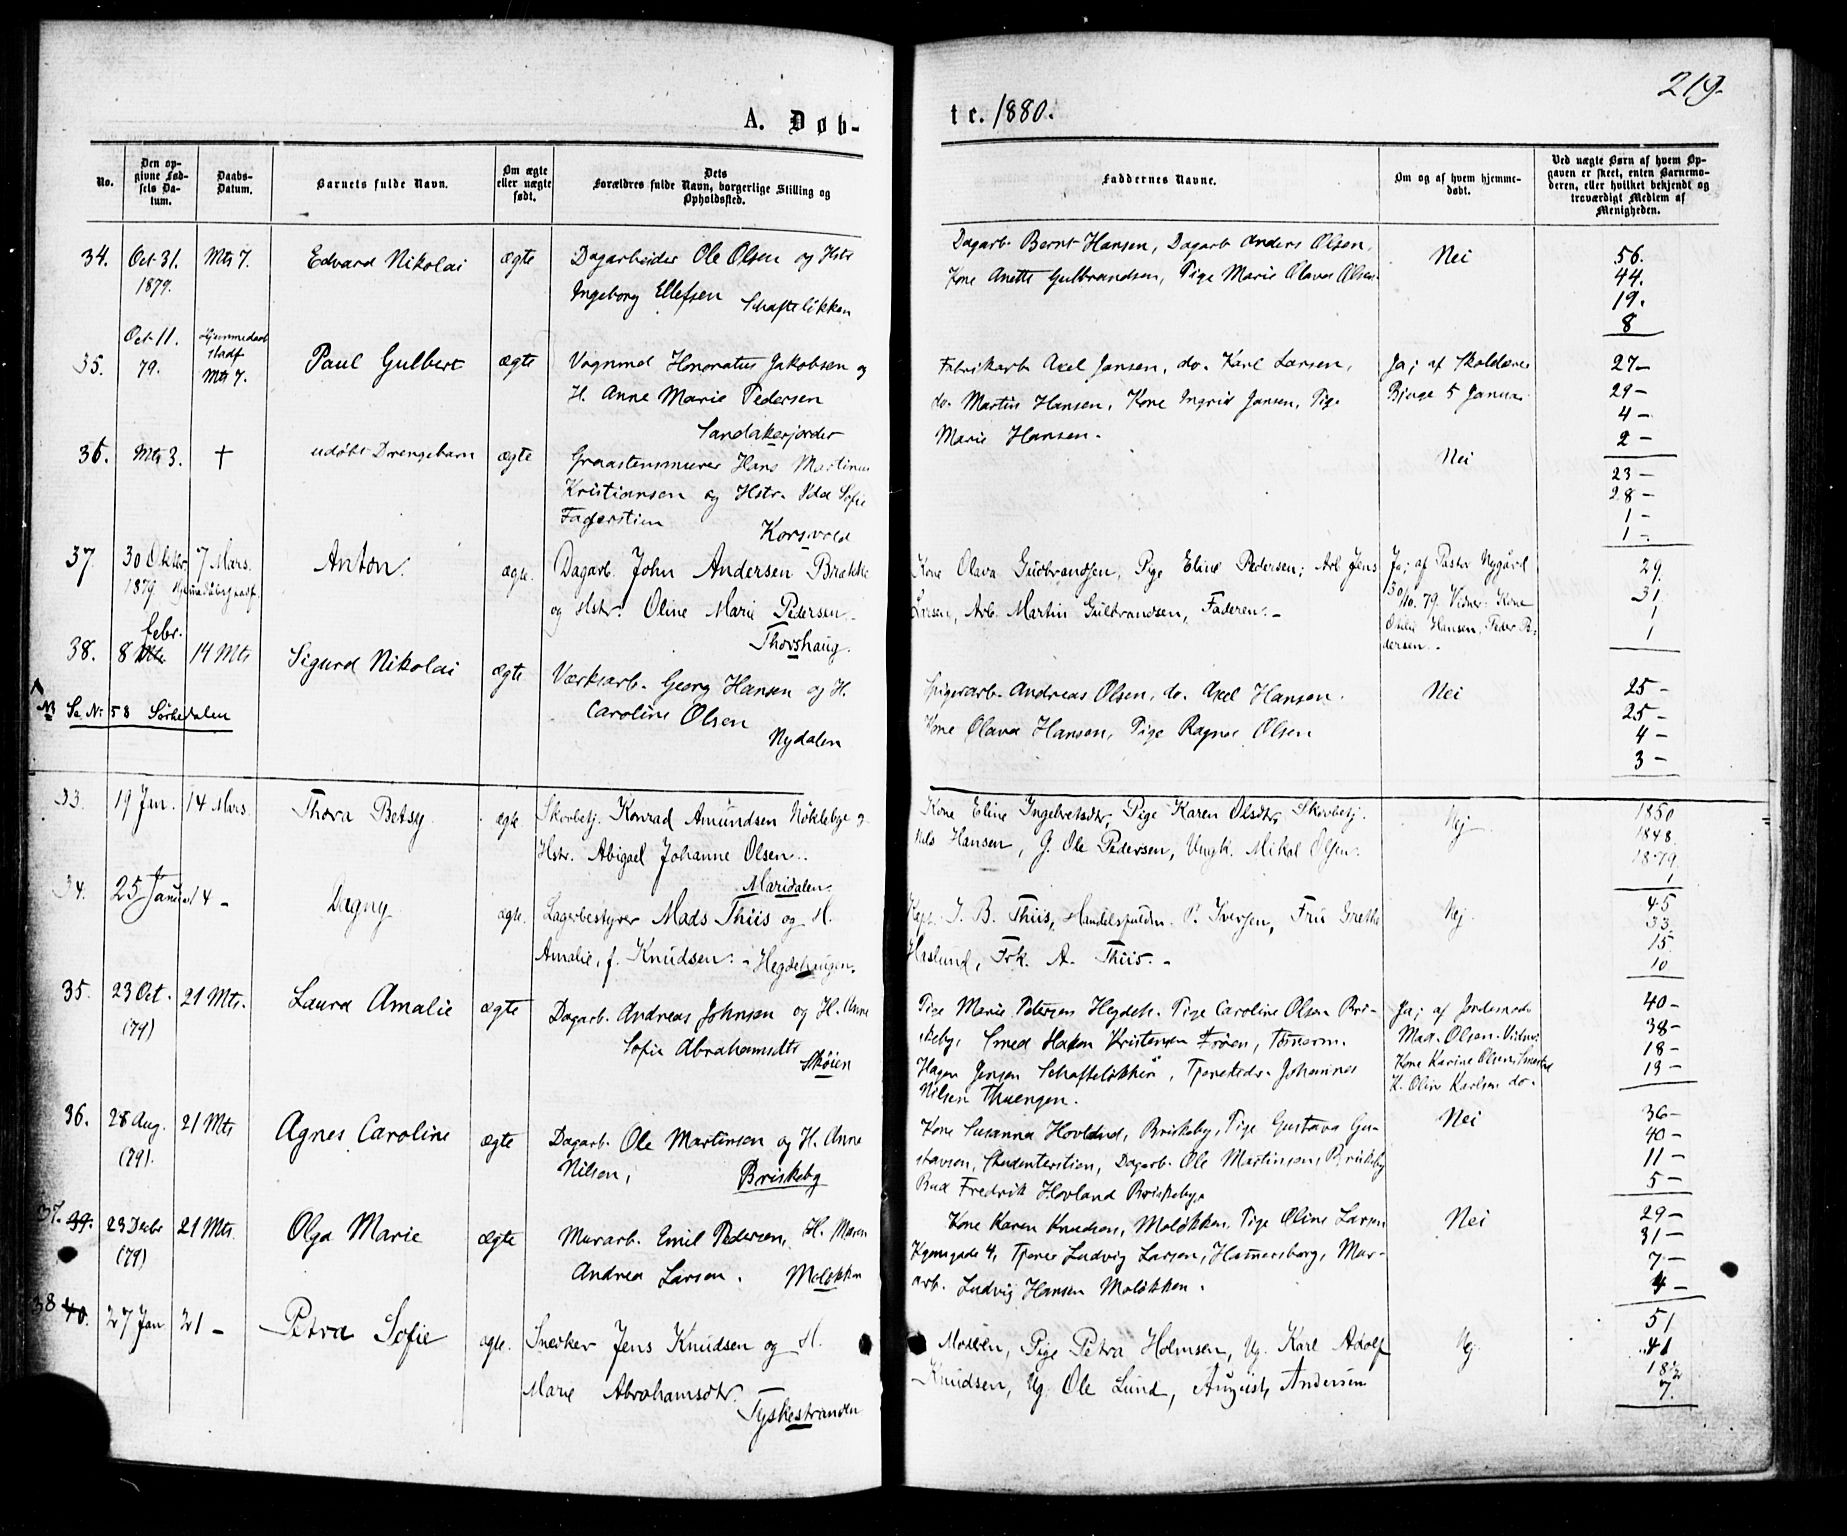 219.
A. Døb-
te. 1880.
No.
Den op-
givne Fød-
sels Da-
tum.
Daabs-
Datum.
Barnets fulde Navn.
Om ægte
eller uægte
født.
Dets
Forældres fulde Navn, borgerlige Stilling og
Opholdssted.
Faddernes Navne.
Om og af hvem hjemme-
døbt.
Ved uægte Børn af hvem Op-
gaven er skeet, enten Barnemo-
deren, eller hvilket bekjendt og
troværdigt Medlem af
Menigheden.
34. Oct 31. Mts 7. Edvard Nikolai ægte Dagarbeider Ole Olsen og Hstr
1879. Ingeborg Ellefsen Schafteløkken
Dagarb. Bernt Hansen, Dagarb Anders Olsen, Nei 56.
Kone Anette Gulbrandsen, Pige Marie Olava Olsen. 44.
19.
8
35. Oct 11. Hjemmedaab
79. stadf
Mts 7. Paul Gulbert ægte Vognmd Honoratus Jakobsen og
H. Anne Marie Pedersen
Sandakerjordet
Fabrikarb Axel Jansen, do. Karl Larsen, Ja; af Skolelærer 27-
do. Martin Hansen, Kone Ingrid Jansen, Pige Bjuge 5 Januar 29-
Marie Hansen. 4-
2-
36. Mts 3. † udøbt Drengebarn ægte Graastensmurer Hans Martinus
Kristiansen og Hstr. Ida Sofie
Fagerstien Korsvold
Nei 23-
28-
1-
1-
37. 30 Oktbr 7 Mars. Anton. ægte. Dagarb. John Andersen Brække
1879 og Hstr. Oline Marie Pedersen.
Thorshaug.
Kone Olava Gudbrandsen, Pige Eline Pedersen, Arb Jens Ja; af Pastor Nygård 29.
Larsen, Arb. Martin Gulbrandsen, Faderen. 30/10. 79. Vidner. Kone 31.
Hansen, Peder Pe- 1
dersen. 1
febr.
38. 8 Mts 14 Mts Sigurd Nikolai ægte Værksarb. Georg Hansen og H.
Caroline Olsen
Nydalen
Spigerarb. Andreas Olsen, do. Axel Hansen. Nei 25-
Kone Olava Hansen, Pige Ragna Olsen 25-
4-
3-
NB Se No 58 Sørkedalen
33. 19 Jan. 14 Mars. Thora Betsy ægte. Skovbetj. Konrad Amundsen Nøklebye og
Hstr. Abigael Johanne Olsen.
Maridalen.
Kone Eline Ingebretsdtr, Pige Karen Olsdtr, Skovbetj. Nej 1850
Nils Hansen, G. Ole Pedersen, Ungk. Mikal Olsen. 1848.
1879.
1
34. 25 Januar 14 - Dagny ægte. Lagerbestyrer Mads Thiis og H.
Amalie, f. Knudsen. - Hegdehaugen.
J. B. Thiis, P. Iversen, Fru Grethe Nej. 45
Haslund, Frk. A. Thiis. - 33.
15
10
35. 23 Oct. 21 Mts. Laura Amalie ægte Dagarb. Andreas Johnsen og H. Anne
(79) Sofie Abrahamsdtr
Skøien
Pige Marie Petersen Hegdeh. Pige Caroline Olsen Bri- Ja; af Jordemod. 40-
skeby, Smed Hakon Kristensen Frøen, Tømerm. Mad. Olsen. Vidner 38-
Hagen Jensen Schafteløkken, Tjenested. Johannes Kone Karine Olsen, 18-
Nilsen Thuengen. K. Oline Karlsen do. 13-
36. 28 Aug. 21 Mts Agnes Caroline ægte Dagarb. Ole Martinsen og H. Anne
(79). Nilsen, Briskeby
Kone Susanna Hovland, Briskeby, Pige Gustava Gu- Nei 36-
stavsen, Studenterstien, Dagarb. Ole Martinsen, Briskeby 40-
Bud Fredrik Hovland Briskeby. 11-
5-
37. 39. 23 Decbr 21 Mts. Olga Marie ægte Murarb. Emil Pedersen, H. Maren
(79) Andrea Larsen. Moløkken
Kone Karen Knudsen, Moløkken, Pige Oline Larsen Nei 29-
4, Tjener Ludvig Larsen, Hamersborg, Mur- 31-
arb. Ludvig Hansen Moløkken. 7-
4-
38 40. 27 Jan 21 - Petra Sofie ægte. Snedker Jens Knudsen og H.
Marie Abrahamsdtr.
Tyskestranden
Moderen, Pige Petra Holmsen, Ug. Karl Adolf Nej 51
Knudsen, Ug. Ole Lund, August Andersen 41
18
7.